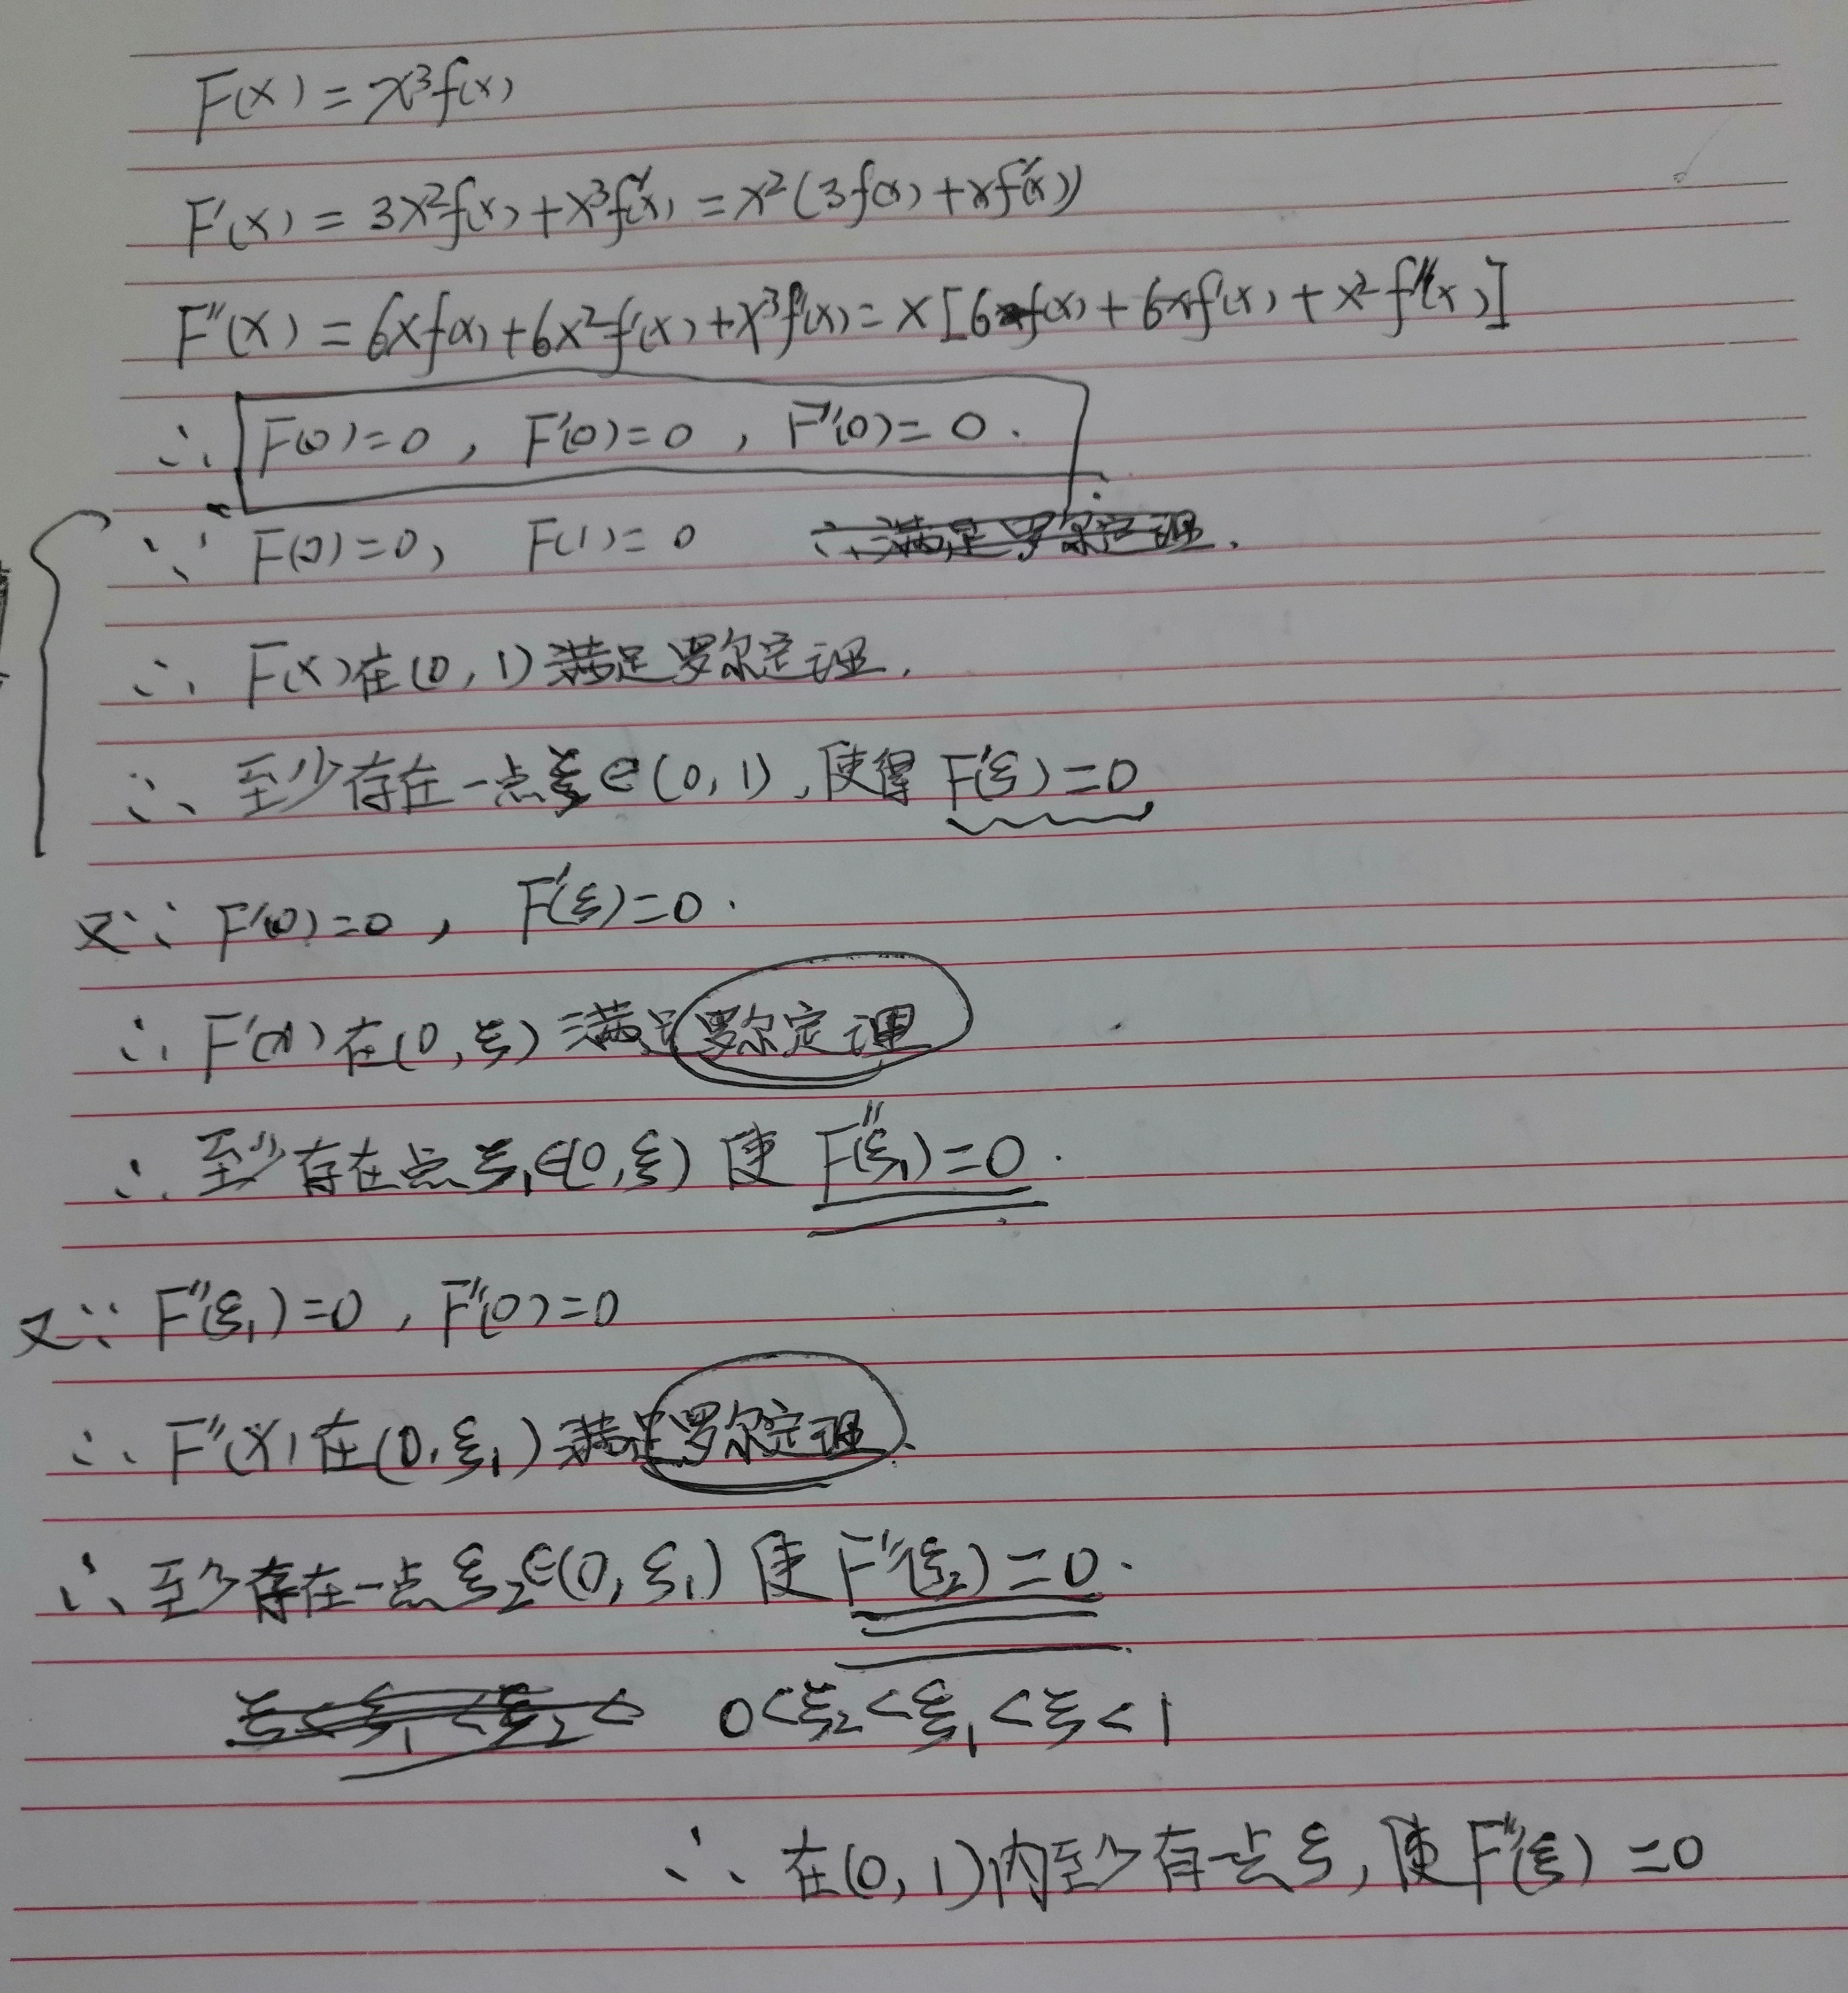 F(x) = x³f(x)
F'(x) = 3x²f(x) + x³f'(x) = x²(3f(x) + xf'(x))
F''(x) = 6xf(x) + 6x²f'(x) + x³f''(x) = x[6f(x) + 6xf'(x) + x²f''(x)]
∴ F(0)=0, F'(0)=0, F''(0)=0.
∵ F(0)=0, F(1)=0 ∴满足罗尔定理.
∴ F(x)在(0,1)满足罗尔定理.
∴ 至少存在一点ξ∈(0,1),使得F'(ξ)=0
又∵ F'(0)=0, F'(ξ)=0.
∴ F'(x)在(0,ξ)满足罗尔定理
∴ 至少存在点ξ₁∈(0,ξ)使F''(ξ₁)=0.
又∵ F''(ξ₁)=0, F''(0)=0
∴ F''(x)在(0,ξ₁)满足罗尔定理.
∴ 至少存在一点ξ₂∈(0,ξ₁)使F'''(ξ₂)=0.
ξ<ξ₁<ξ₂< 0<ξ₂<ξ₁<ξ<1
∴ 在(0,1)内至少有一点ξ,使F'''(ξ)=0